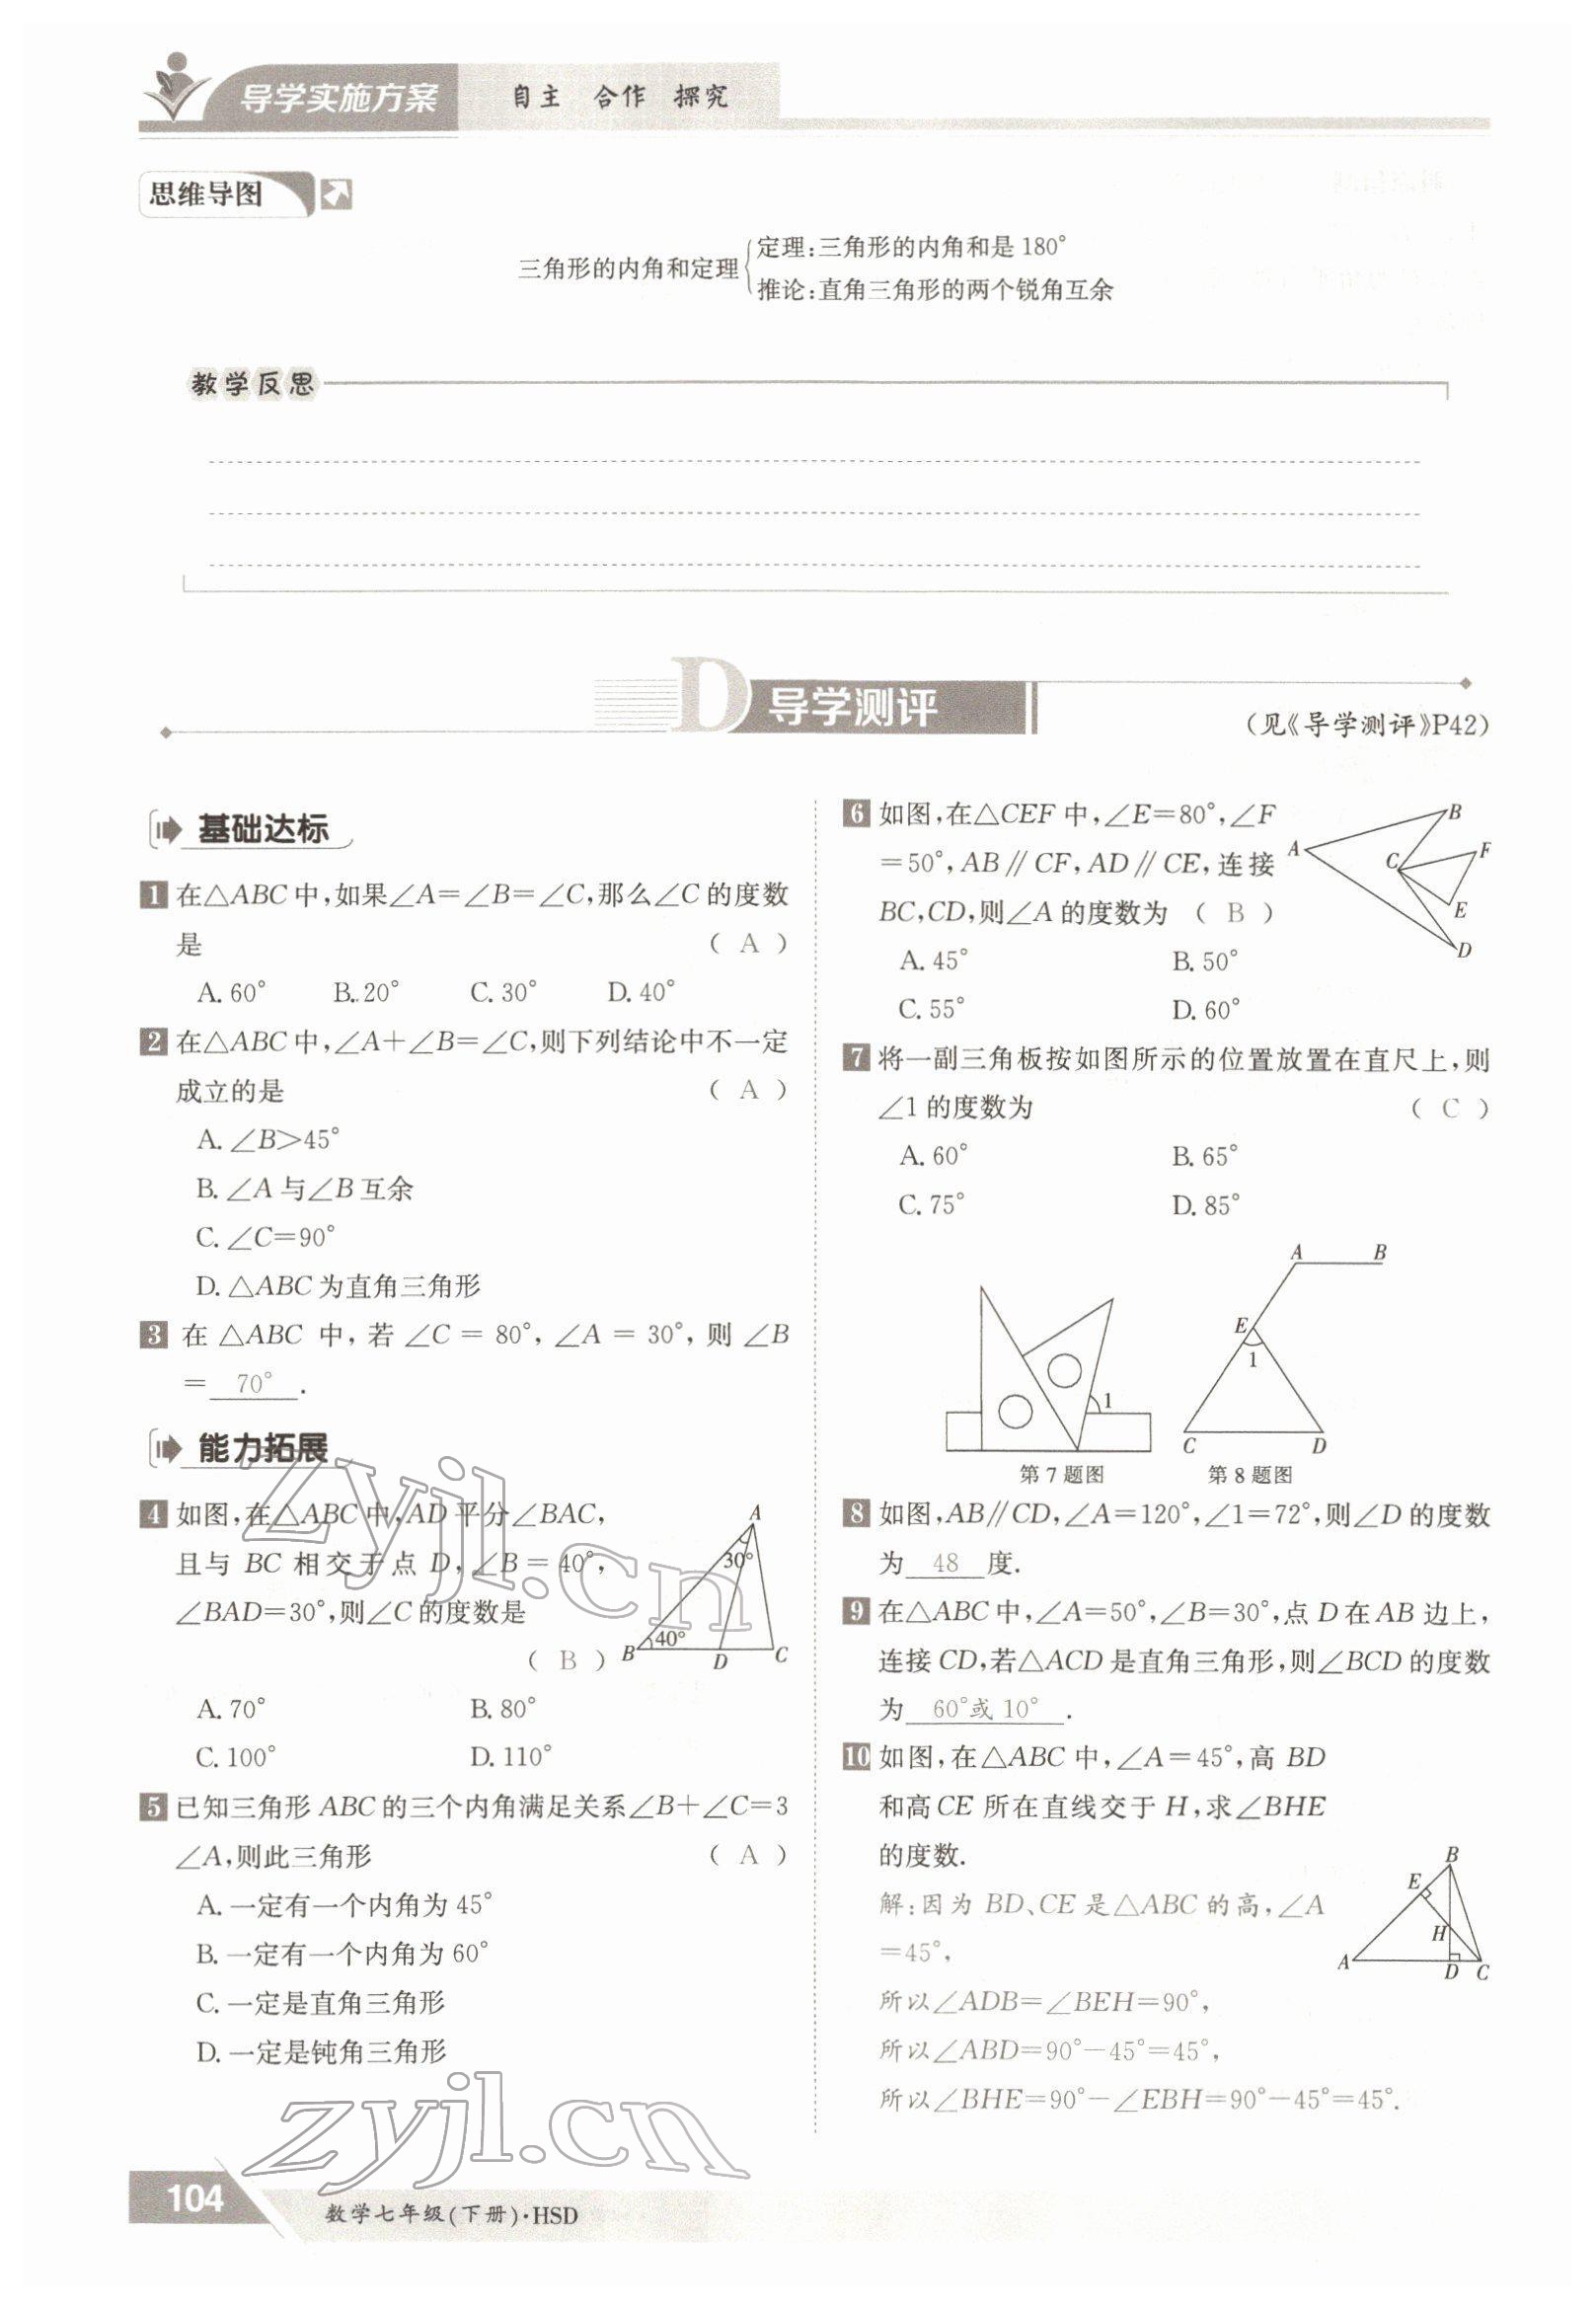 导学实施方案 自主 合作 探究
思维导图
三角形的内角和定理
定理:三角形的内角和是180°
推论:直角三角形的两个锐角互余
教学反思
D 导学测评
(见《导学测评》P42)
基础达标
1 在△ABC中,如果∠A=∠B=∠C,那么∠C的度数
是 ( A )
A. 60° B. 20° C. 30° D. 40°
2 在△ABC中,∠A+∠B=∠C,则下列结论中不一定
成立的是 ( A )
A. ∠B>45°
B. ∠A与∠B互余
C. ∠C=90°
D. △ABC为直角三角形
3 在△ABC中,若∠C=80°,∠A=30°,则∠B
= 70° .
能力拓展
4 如图,在△ABC中,AD平分∠BAC,
且与BC相交于点D,∠B=40°,
∠BAD=30°,则∠C的度数是
( B )
A
30°
40°
B
D
C
A. 70° B. 80°
C. 100° D. 110°
5 已知三角形ABC的三个内角满足关系∠B+∠C=3
∠A,则此三角形 ( A )
A. 一定有一个内角为45°
B. 一定有一个内角为60°
C. 一定是直角三角形
D. 一定是钝角三角形
6 如图,在△CEF中,∠E=80°,∠F
=50°,AB∥CF,AD∥CE,连接
BC,CD,则∠A的度数为 ( B )
A
B
C
F
E
D
A. 45° B. 50°
C. 55° D. 60°
7 将一副三角板按如图所示的位置放置在直尺上,则
∠1的度数为 ( C )
A. 60° B. 65°
C. 75° D. 85°
1
第7题图
A B
E
1
C D
第8题图
8 如图,AB∥CD,∠A=120°,∠1=72°,则∠D的度数
为 48 度.
9 在△ABC中,∠A=50°,∠B=30°,点D在AB边上,
连接CD,若△ACD是直角三角形,则∠BCD的度数
为 60°或10° .
10 如图,在△ABC中,∠A=45°,高BD
和高CE所在直线交于H,求∠BHE
的度数.
B
E
H
A
D C
解:因为BD、CE是△ABC的高,∠A
=45°,
所以∠ADB=∠BEH=90°,
所以∠ABD=90°-45°=45°,
所以∠BHE=90°-∠EBH=90°-45°=45°.
zyjl.cn
zyjl.cn
104
数学七年级(下册)·HSD